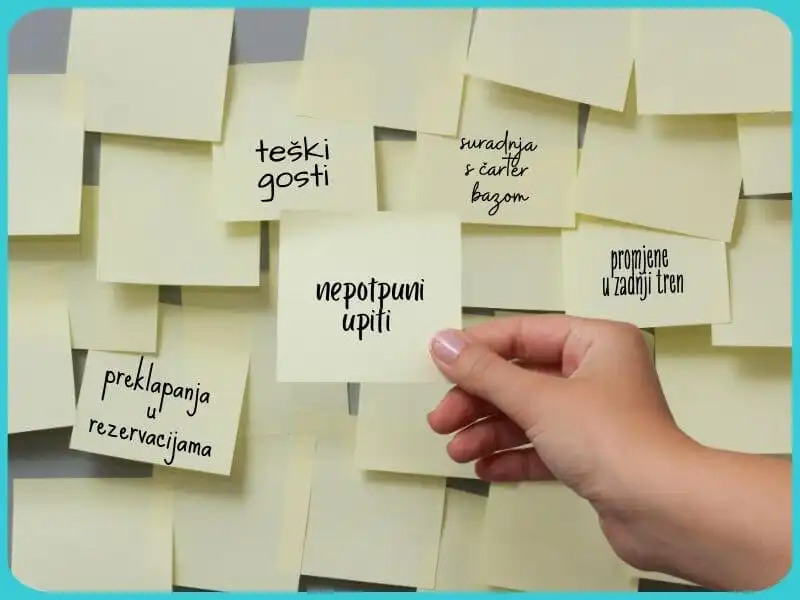 teški
gosti
suradnja
s čarter
bazom
nepotpuni
upiti
promjene
u zadnji tren
preklapanja
u
rezervacijama